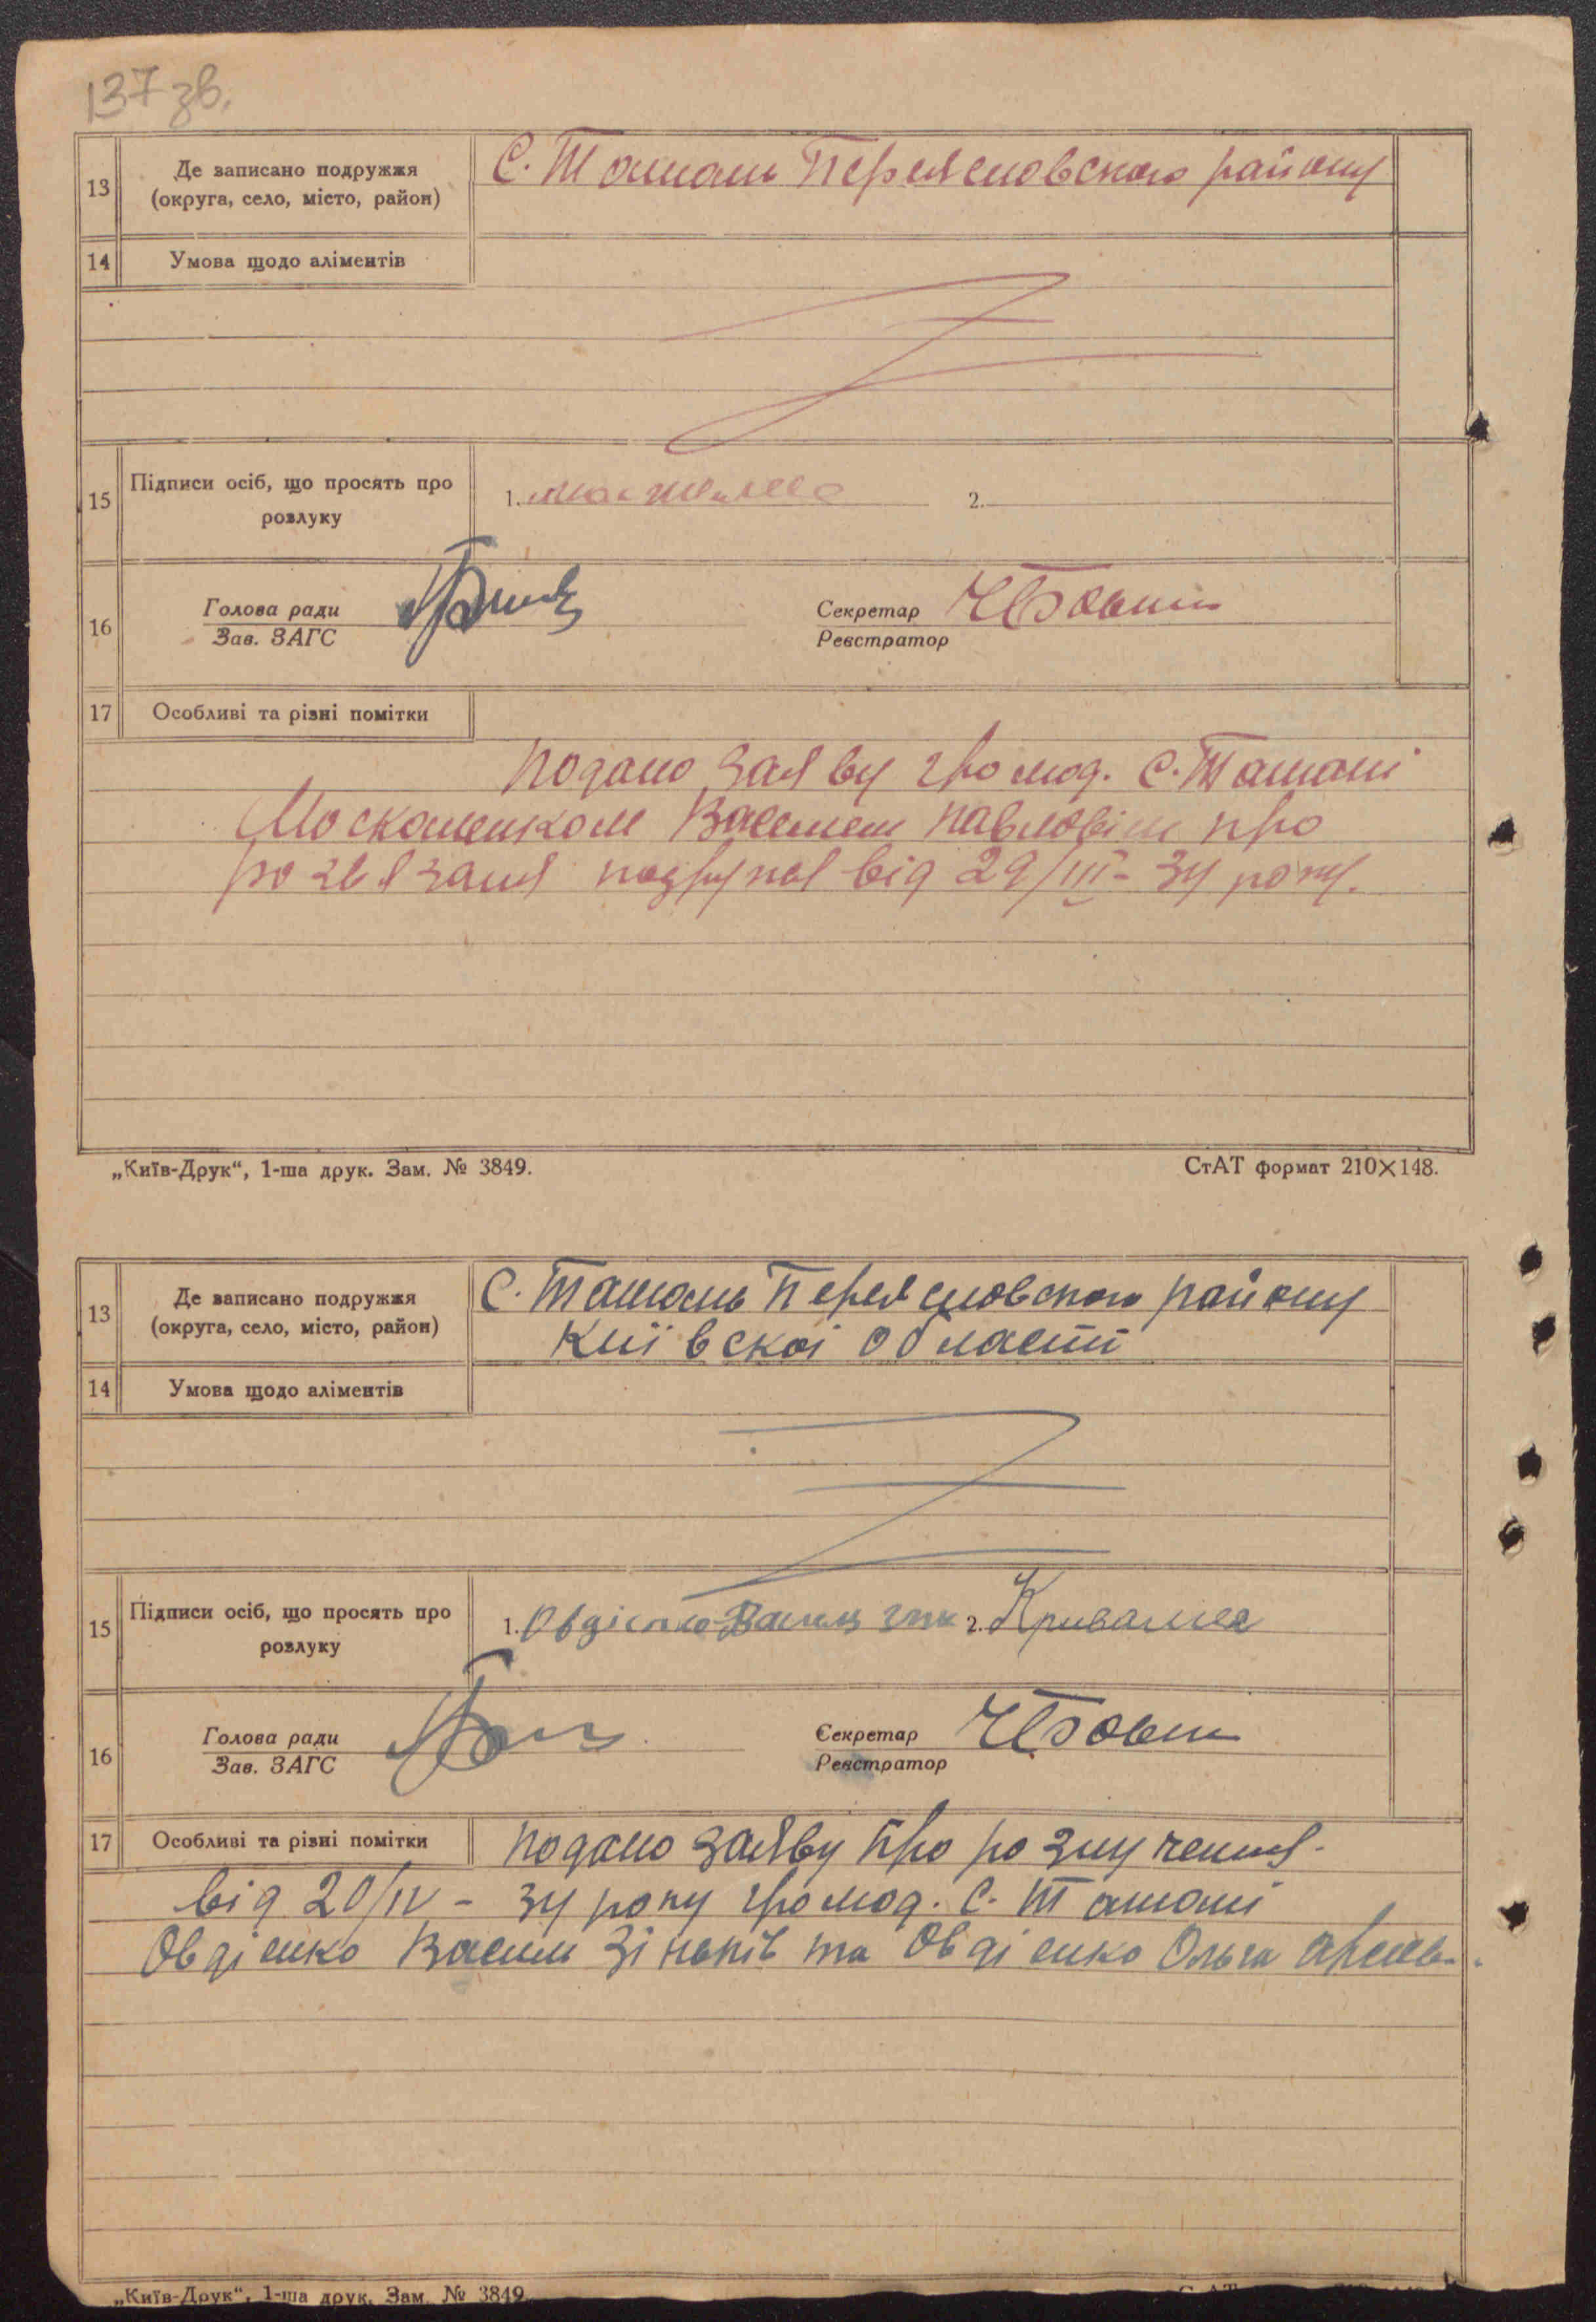 137 зв.
13
Де записано подружжя
(округа, село, місто, район)
С. Ташань Переясловского району
14
Умова щодо аліментів
15
Підписи осіб, що просять про
розлуку
1.
2.
16
Голова ради
Зав. ЗАГС
Секретар
Реєстратор
17
Особливі та різні помітки
подано заяву громод. С. Ташані
Москаленком Василем Павловіш про
розвязаня подружя від 29/III - 34 року.
„Київ-Друк“, 1-ша друк. Зам. № 3849.
СтАТ формат 210×148.
13
Де записано подружжя
(округа, село, місто, район)
С. Ташань Переясловского району
Київскоі области
14
Умова щодо аліментів
15
Підписи осіб, що просять про
розлуку
1. Овдієнко Василь 2.
16
Голова ради
Зав. ЗАГС
Секретар
Реєстратор
17
Особливі та різні помітки
подано заяву про розлученя.
від 20/IV - 34 року громод. С. Ташані
Овдіенко Васил Зіньків та Овдіенко Ольга
„Київ-Друк“, 1-ша друк. Зам. № 3849.